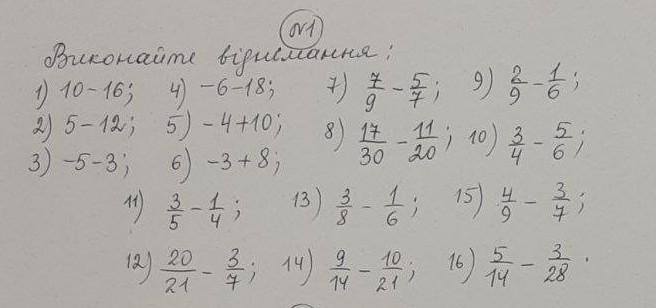 №1
Виконайте віднімання:
1) 10-16; 4) -6-18; 7) 7/9 - 5/7; 9) 2/9 - 1/6;
2) 5-12; 5) -4+10; 8) 17/30 - 11/20; 10) 3/4 - 5/6;
3) -5-3; 6) -3+8;
11) 3/5 - 1/4; 13) 3/8 - 1/6; 15) 4/9 - 3/7;
12) 20/21 - 3/7; 14) 9/14 - 10/21; 16) 5/14 - 3/28.